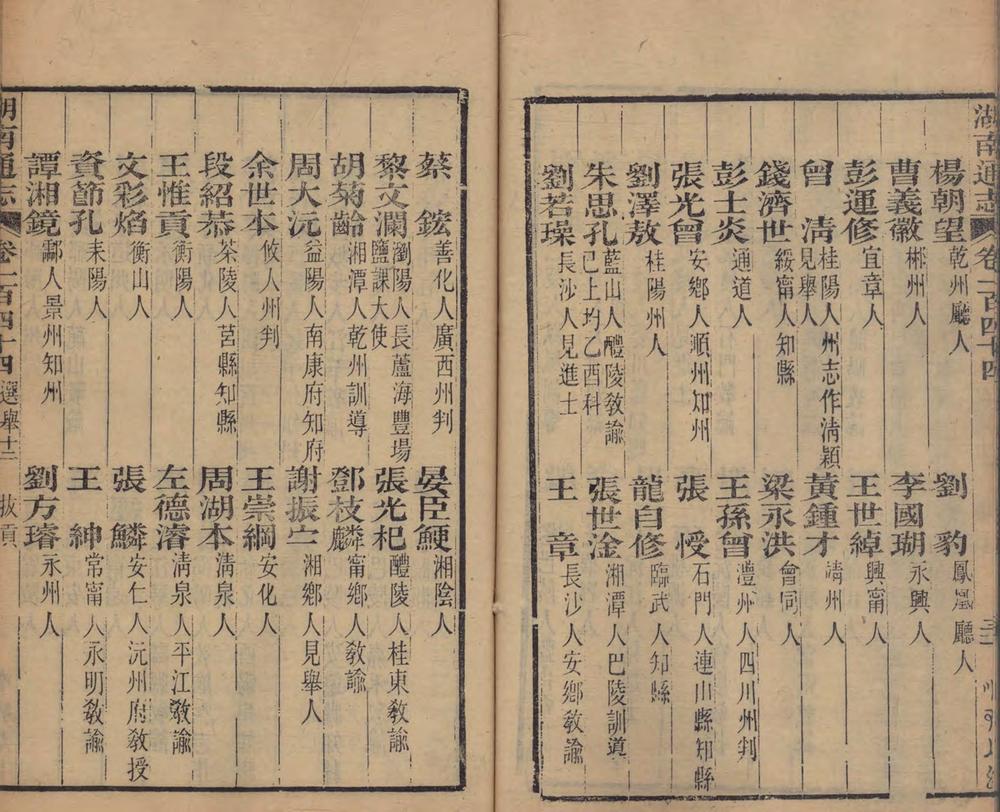 湖南通志 卷一百四十四
楊朝望 乾州廳人 劉豹 鳳凰廳人
曹義徽 郴州人 李國瑚 永興人
彭運修 宜章人 王世綽 興甯人
曾清 桂陽人州志作清穎見舉人 黃鍾才 靖州人
錢濟世 綏甯人知縣 梁永洪 會同人
彭士炎 通道人 王孫曾 澧州人四川州判
張光曾 安鄉人順州知州 張㥅 石門人連山縣知縣
劉澤敖 桂陽州人 龍自修 臨武人知縣
朱思孔 藍山人醴陵教諭已上均乙酉科 張世淦 湘潭人巴陵訓道
劉若璪 長沙人見進士 王章 長沙人安鄉教諭
蔡鋐 善化人廣西州判 晏臣鯁 湘陰人
黎文瀾 瀏陽人長蘆海豐場鹽課大使 張光杷 醴陵人桂東教諭
胡菊齡 湘潭人乾州訓導 鄧枝麟 甯鄉人教諭
周大沅 益陽人南康府知府 謝振宀 湘鄉人見舉人
余世本 攸人州判 王崇綱 安化人
段紹恭 茶陵人莒縣知縣 周湖本 清泉人
王惟貢 衡陽人 左德濬 清泉人平江教諭
文彩焰 衡山人 張鱗 安仁人沅州府教授
資節孔 耒陽人 王紳 常甯人永明教諭
譚湘鏡 酃人景州知州 劉方璿 永州人
湖南通志 卷一百四十四 選舉十二 拔貢